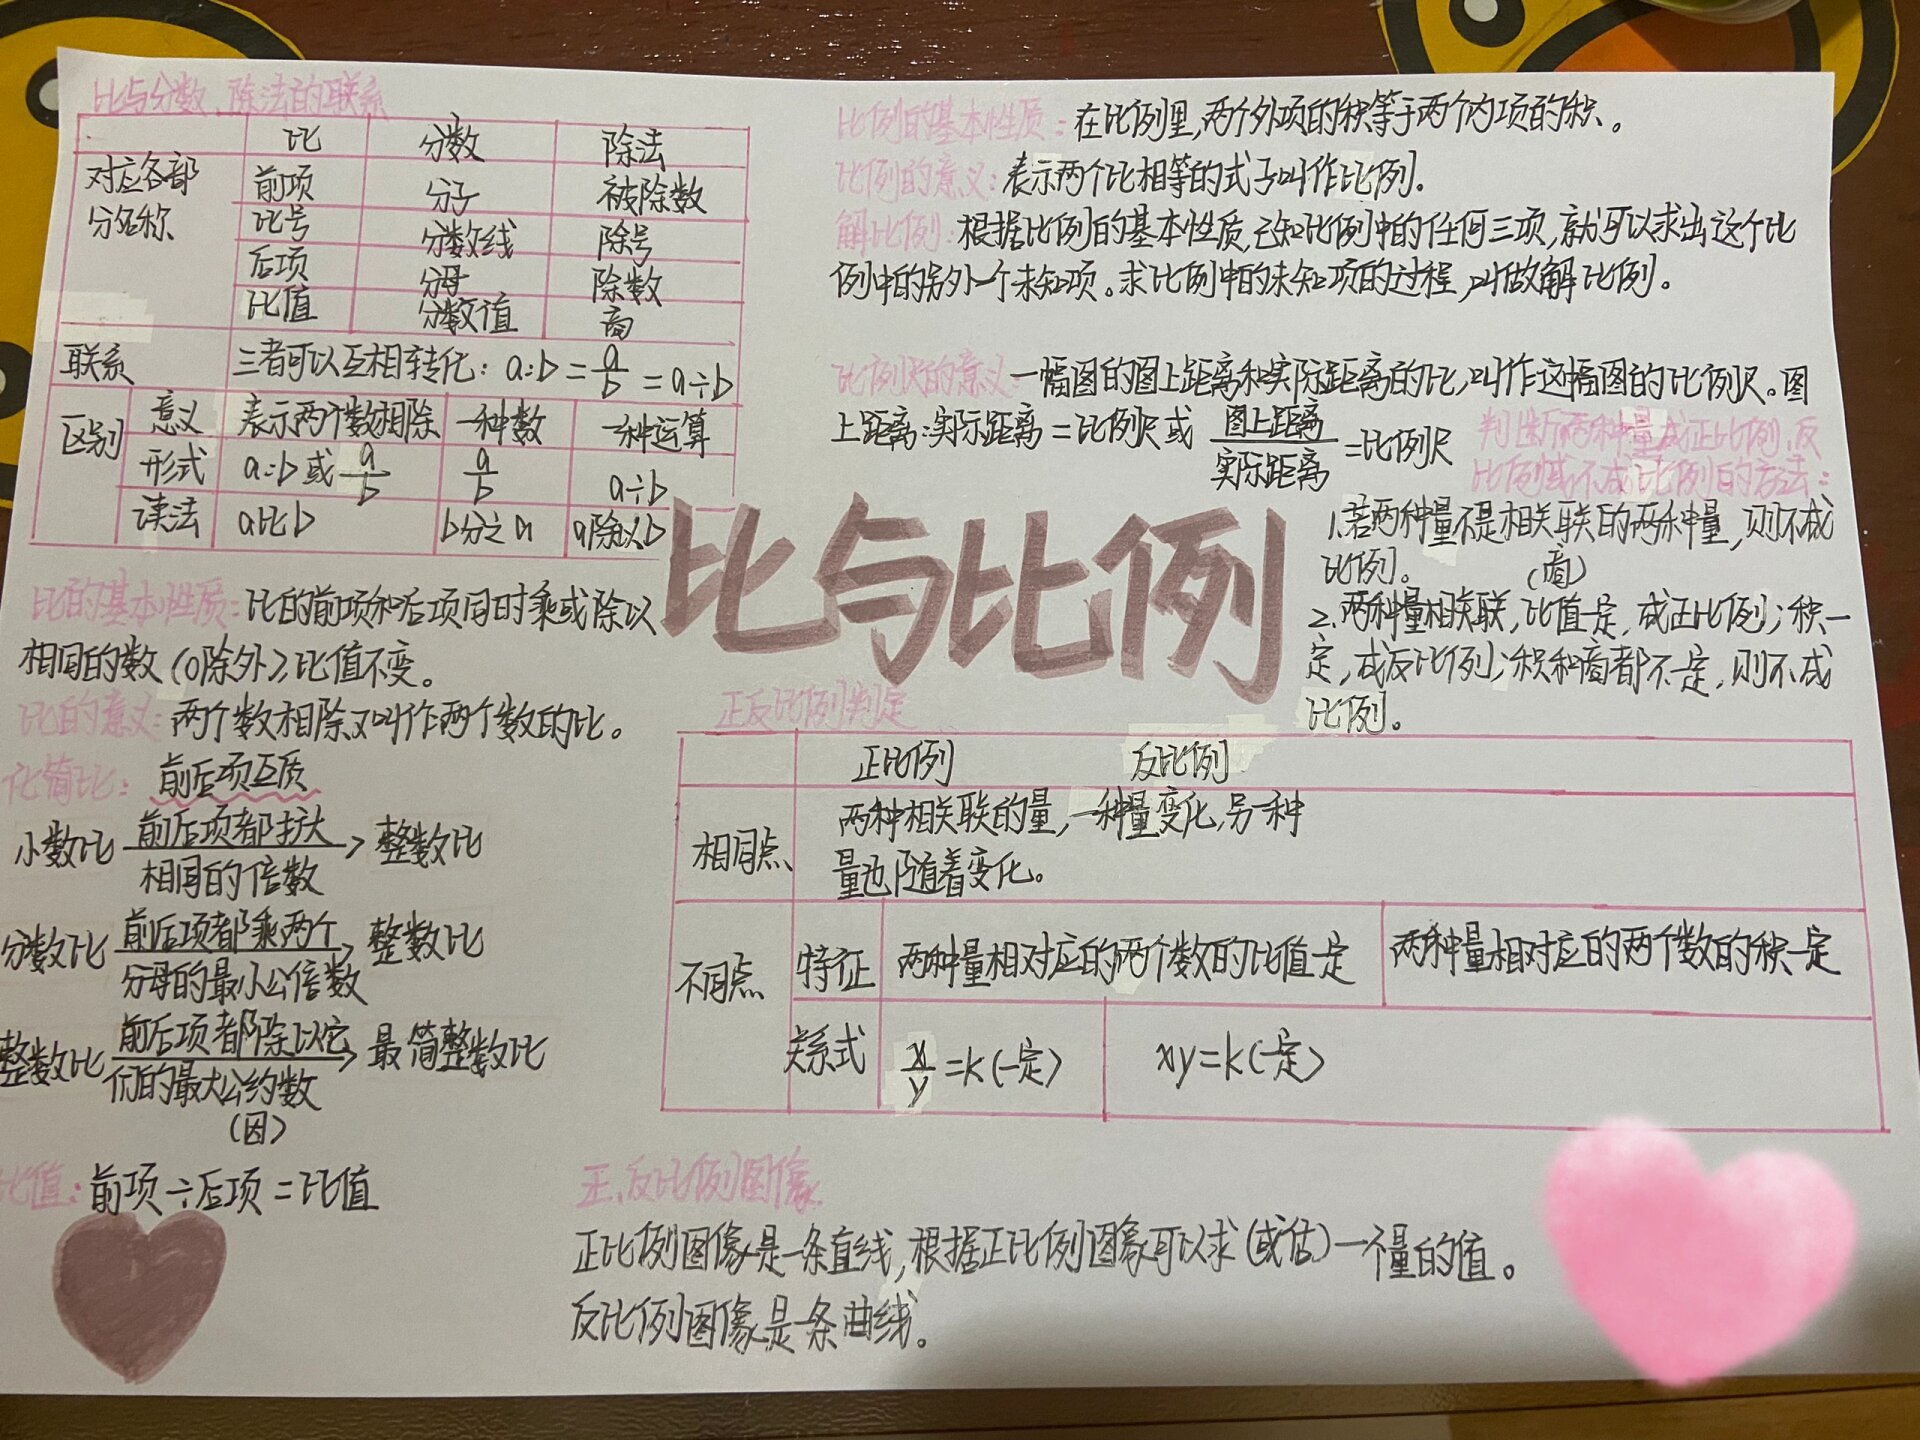 比与分数、除法的联系
比 分数 除法
对应各部分名称 前项 分子 被除数
比号 分数线 除号
后项 分母 除数
比值 分数值 商
联系 三者可以互相转化：a:b=a/b=a÷b
区别 意义 表示两个数相除 一种数 一种运算
形式 a:b或a/b a/b a÷b
读法 a比b b分之a a除以b
比的基本性质：比的前项和后项同时乘或除以
相同的数（0除外），比值不变。
比的意义：两个数相除又叫作两个数的比。
化简比：前后项互质
小数比 前后项都扩大相同的倍数 → 整数比
分数比 前后项都乘两个分母的最小公倍数 → 整数比
整数比 前后项都除以它们的最大公约数（因） → 最简整数比
比值：前项÷后项=比值
比与比例
比例的基本性质：在比例里，两个外项的积等于两个内项的积。
比例的意义：表示两个比相等的式子叫作比例。
解比例：根据比例的基本性质，已知比例中的任何三项，就可以求出这个比
例中的另外一个未知项。求比例中的未知项的过程，叫做解比例。
比例尺的意义：一幅图的图上距离和实际距离的比，叫作这幅图的比例尺。图
上距离：实际距离=比例尺或 图上距离/实际距离=比例尺
判断两种量成正比例、反
比例或不成比例的方法：
1.若两种量不是相关联的两种量，则不成
比例。
（商）
2.两种量相关联，比值一定，成正比例；积一
定，成反比例；积和商都不一定，则不成
比例。
正反比例判定
正比例 反比例
相同点 两种相关联的量，一种量变化，另一种
量也随着变化。
不同点 特征 两种量相对应的两个数的比值一定 两种量相对应的两个数的积一定
关系式 x/y=k（一定） xy=k（一定）
正、反比例图像
正比例图像是一条直线，根据正比例图象可以求（或估）一个量的值。
反比例图像是一条曲线。